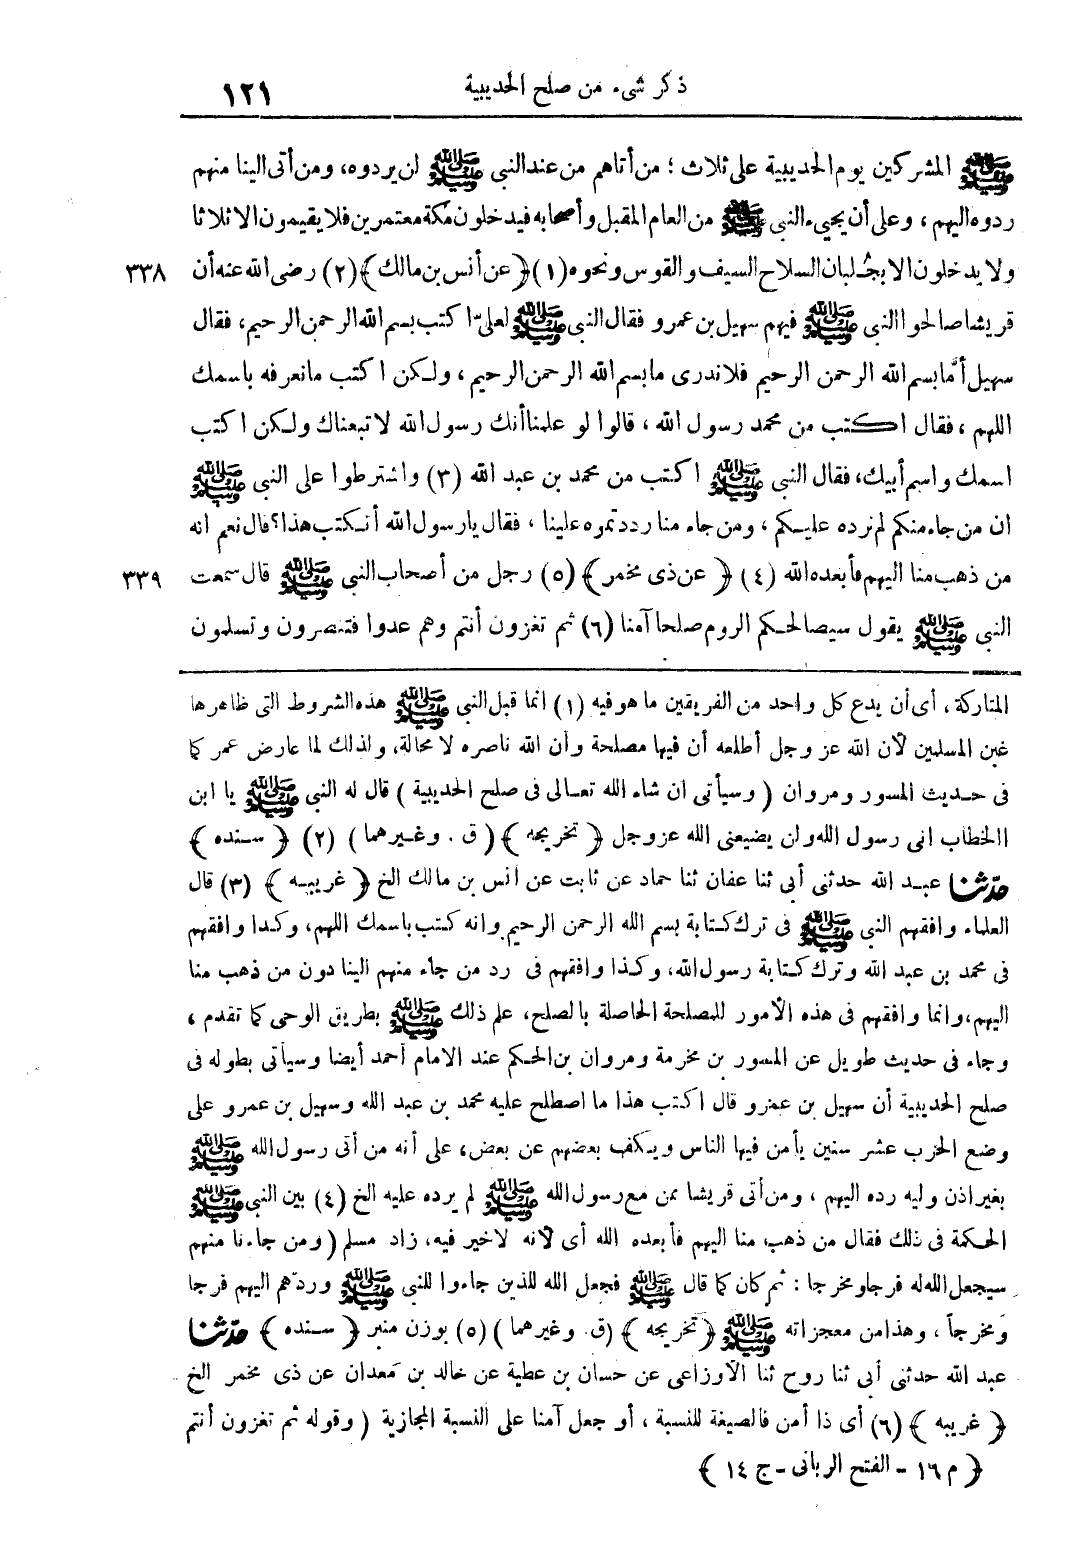 ذكر شىء من صلح الحديبية ١٢١
ﷺ المشركين يوم الحديبية على ثلاث ؛ من أتاهم من عند النبى ﷺ لن يردوه، ومن أتى الينا منهم
ردوه اليهم ، وعلى أن يجىء النبى ﷺ من العام المقبل وأصحابه فيدخلون مكة معتمرين فلا يقيمون الا ثلاثا
ولا يدخلون الا بجُلبان السلاح السيف والقوس ونحوه (١) ﴿ عن أنس بن مالك ﴾ (٢) رضى الله عنه أن ٣٣٨
قريشا صالحوا النبى ﷺ فيهم سهيل بن عمرو فقال النبى ﷺ لعلىّ اكتب بسم الله الرحمن الرحيم، فقال
سهيل أمَّا بسم الله الرحمن الرحيم فلا ندرى ما بسم الله الرحمن الرحيم ، ولكن اكتب ما نعرفه باسمك
اللهم ، فقال اكتب من محمد رسول الله ، قالوا لو علمنا أنك رسول الله لاتبعناك ولكن اكتب
اسمك واسم أبيك، فقال النبى ﷺ اكتب من محمد بن عبد الله (٣) واشترطوا على النبى ﷺ
ان من جاء منكم لم نرده عليكم ، ومن جاء منا رددتموه علينا ، فقال يا رسول الله أنكتب هذا؟ قال نعم انه
من ذهب منا اليهم فأبعده الله (٤) ﴿ عن ذى مخمر ﴾ (٥) رجل من أصحاب النبى ﷺ قال سمعت ٣٣٩
النبى ﷺ يقول سيصالحكم الروم صلحا آمنا (٦) ثم تغزون أنتم وهم عدوا فتنصرون وتسلمون
المتاركة ، أى أن يدع كل واحد من الفريقين ما هو فيه (١) انما قبل النبى ﷺ هذه الشروط التى ظاهرها
غبن المسلمين لأن الله عز وجل أطلعه أن فيها مصلحة وأن الله ناصره لا محالة، ولذلك لما عارض عمر كما
فى حديث المسور ومروان ( وسيأتى ان شاء الله تعالى فى صلح الحديبية ) قال له النبى ﷺ يا ابن
الخطاب انى رسول الله ولن يضيعنى الله عز وجل ﴿ تخريجه ﴾ ( ق . وغيرهما ) (٢) ﴿ سنده ﴾
حدّثنا عبد الله حدثنى أبى ثنا عفان ثنا حماد عن ثابت عن أنس بن مالك الخ ﴿ غريبه ﴾ (٣) قال
العلماء وافقهم النبى ﷺ فى ترك كتابة بسم الله الرحمن الرحيم وانه كتب باسمك اللهم، وكذا وافقهم
فى محمد بن عبد الله وترك كتابة رسول الله، وكذا وافقهم فى رد من جاء منهم الينا دون من ذهب منا
اليهم، وانما وافقهم فى هذه الأمور للمصلحة الحاصلة بالصلح، علم ذلك ﷺ بطريق الوحى كما تقدم ،
وجاء فى حديث طويل عن المسور بن مخرمة ومروان بن الحكم عند الامام أحمد أيضا وسيأتى بطوله فى
صلح الحديبية أن سهيل بن عمرو قال اكتب هذا ما اصطلح عليه محمد بن عبد الله وسهيل بن عمرو على
وضع الحرب عشر سنين يأمن فيها الناس ويكف بعضهم عن بعض، على أنه من أتى رسول الله ﷺ
بغير اذن وليه رده اليهم ، ومن أتى قريشا ممن مع رسول الله ﷺ لم يرده عليه الخ (٤) بين النبى ﷺ
الحكمة فى ذلك فقال من ذهب منا اليهم فأبعده الله أى لأنه لا خير فيه، زاد مسلم ( ومن جاءنا منهم
سيجعل الله له فرجا ومخرجا : ثم كان كما قال ﷺ فجعل الله للذين جاءوا للنبى ﷺ وردّهم اليهم فرجا
ومخرجاً ، وهذا من معجزاته ﷺ ﴿ تخريجه ﴾ (ق. وغيرهما ) (٥) بوزن منبر ﴿ سنده ﴾ حدّثنا
عبد الله حدثنى أبى ثنا روح ثنا الأوزاعى عن حسان بن عطية عن خالد بن معدان عن ذى مخمر الخ
﴿ غريبه ﴾ (٦) أى ذا أمن فالصيغة للنسبة ، أو جعل آمنا على النسبة المجازية ( وقوله ثم تغزون أنتم
﴿ م ١٦ - الفتح الربانى - ج ١٤ ﴾